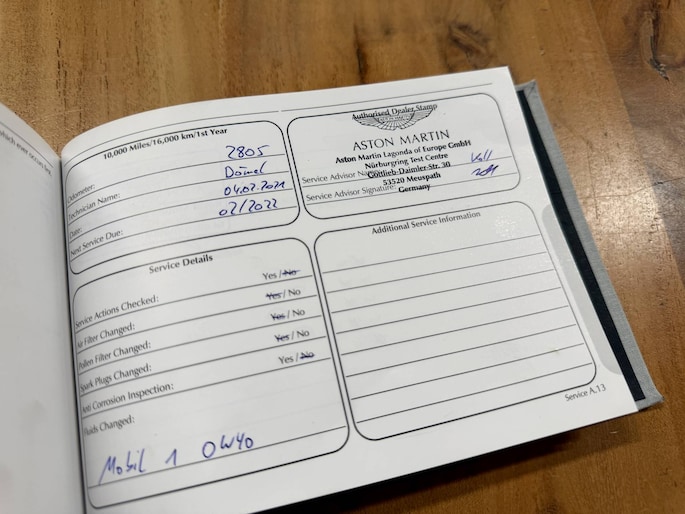 which ever occurs first
10,000 Miles/16,000 km/1st Year
Odometer: 2805
Technician Name: Dömel
Date: 04.02.2021
Next Service Due: 02/2022
Authorised Dealer Stamp
ASTON MARTIN
Aston Martin Lagonda of Europe GmbH
Nürburgring Test Centre
Service Advisor Name:
Gottlieb-Daimler-Str. 30
53520 Meuspath
Service Advisor Signature:
Germany
Service Details
Service Actions Checked: Yes / No
Air Filter Changed: Yes / No
Pollen Filter Changed: Yes / No
Spark Plugs Changed: Yes / No
Anti Corrosion Inspection: Yes / No
Fluids Changed:
Mobil 1 0W40
Additional Service Information
Service A.13